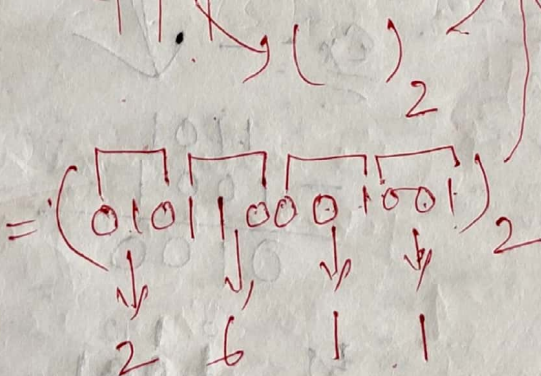 ( )₂
= (010110001001)₂
2 6 1 1